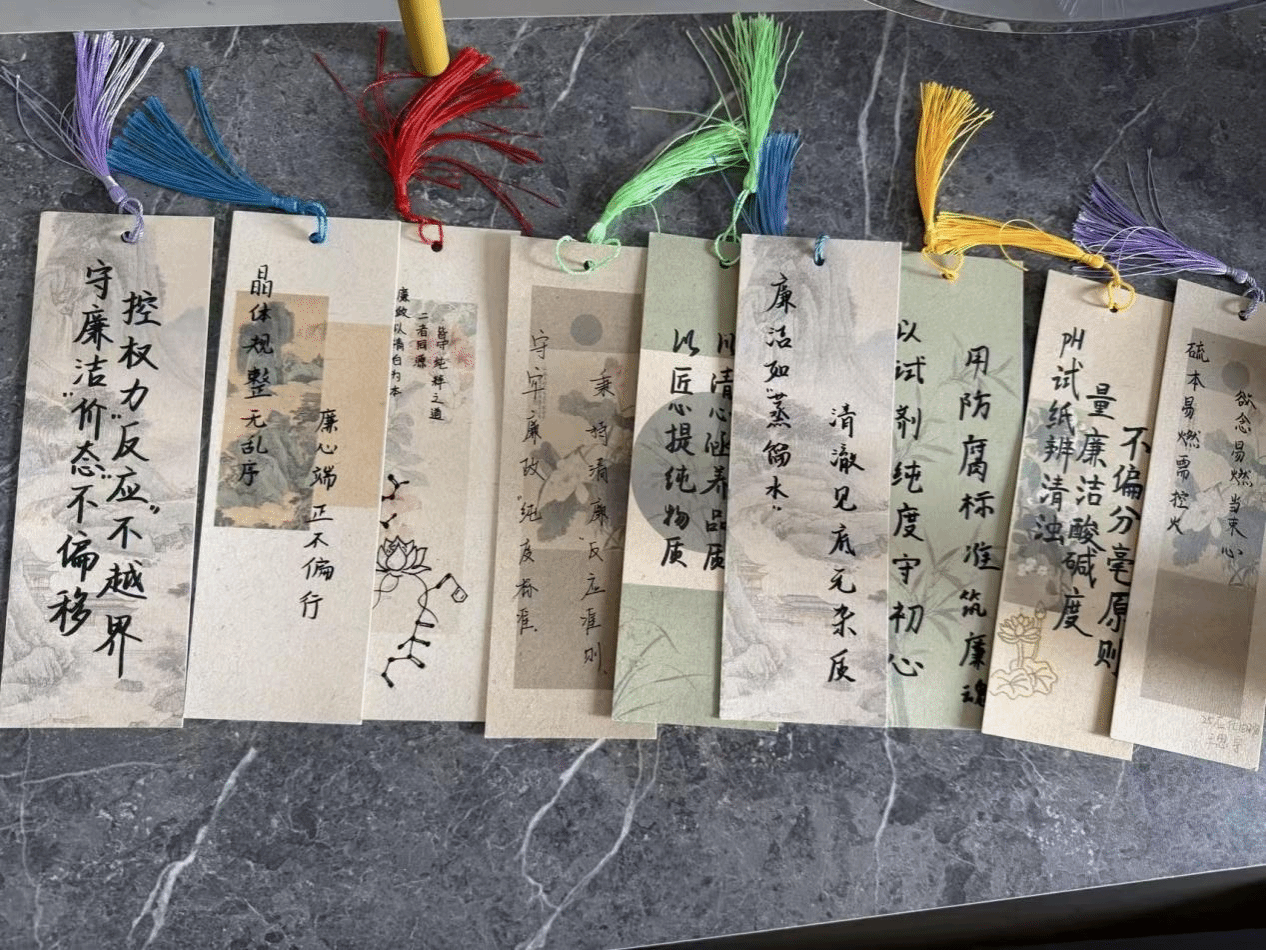 守廉洁"价态"不偏移
控权力"反应"不越界
晶体规整无乱序
廉心端正不偏行
廉政以清白为本
二者同源
皆守纯粹之道
守牢廉政"纯度标准"
秉持清廉"反应准则"
以匠心提纯物质
以清心涵养品质
廉洁如"蒸馏水"
清澈见底无杂质
以试剂纯度守初心
用防腐标准筑廉魂
PH试纸辨清浊
量廉洁酸碱度
不偏分毫原则
硫本易燃需控火
欲念易燃当束心